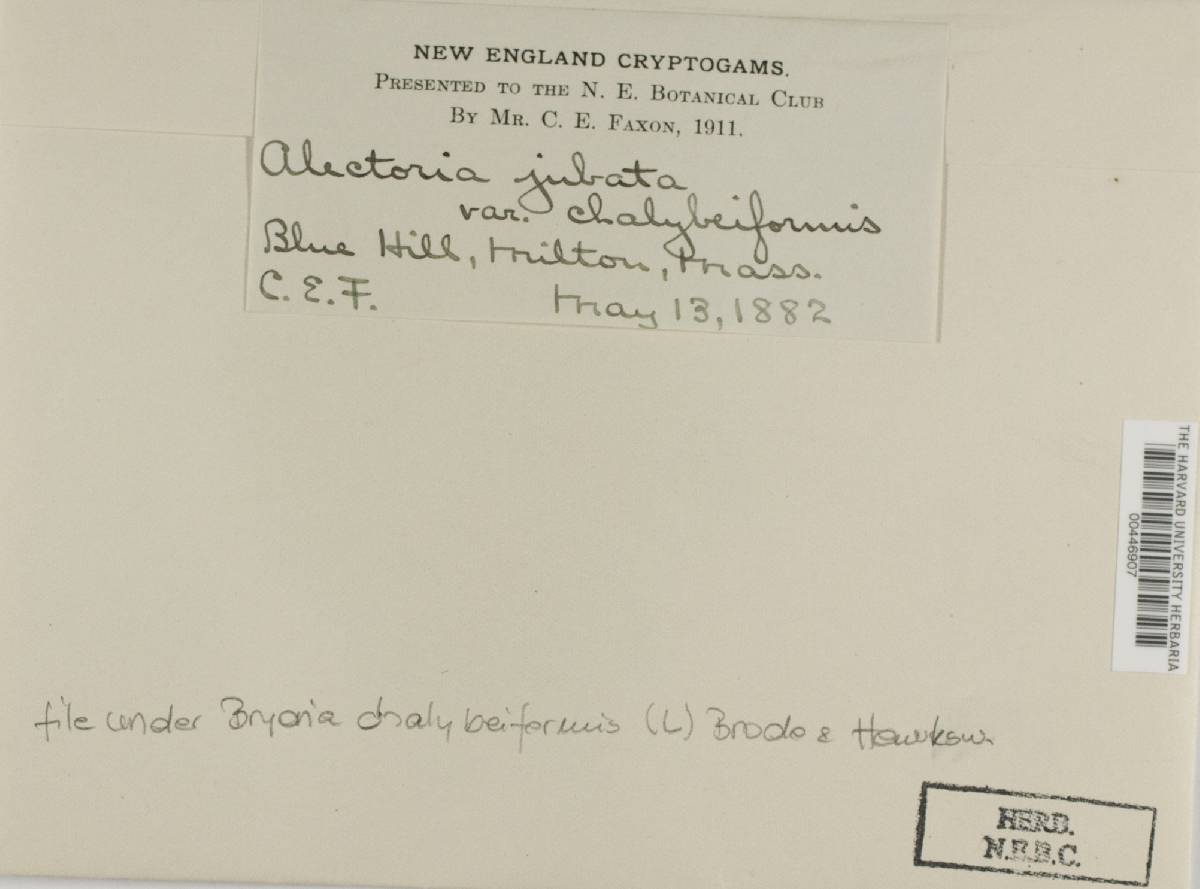 NEW ENGLAND CRYPTOGAMS.
PRESENTED TO THE N. E. BOTANICAL CLUB
BY MR. C. E. FAXON, 1911.
Alectoria jubata
var. chalybeiformis
Blue Hill, Milton, Mass.
C. E. F. May 13, 1882
THE HARVARD UNIVERSITY HERBARIA
00446907
file under Bryoria chalybeiformis (L) Brodo & Hawksw.
HERB.
N.E.B.C.